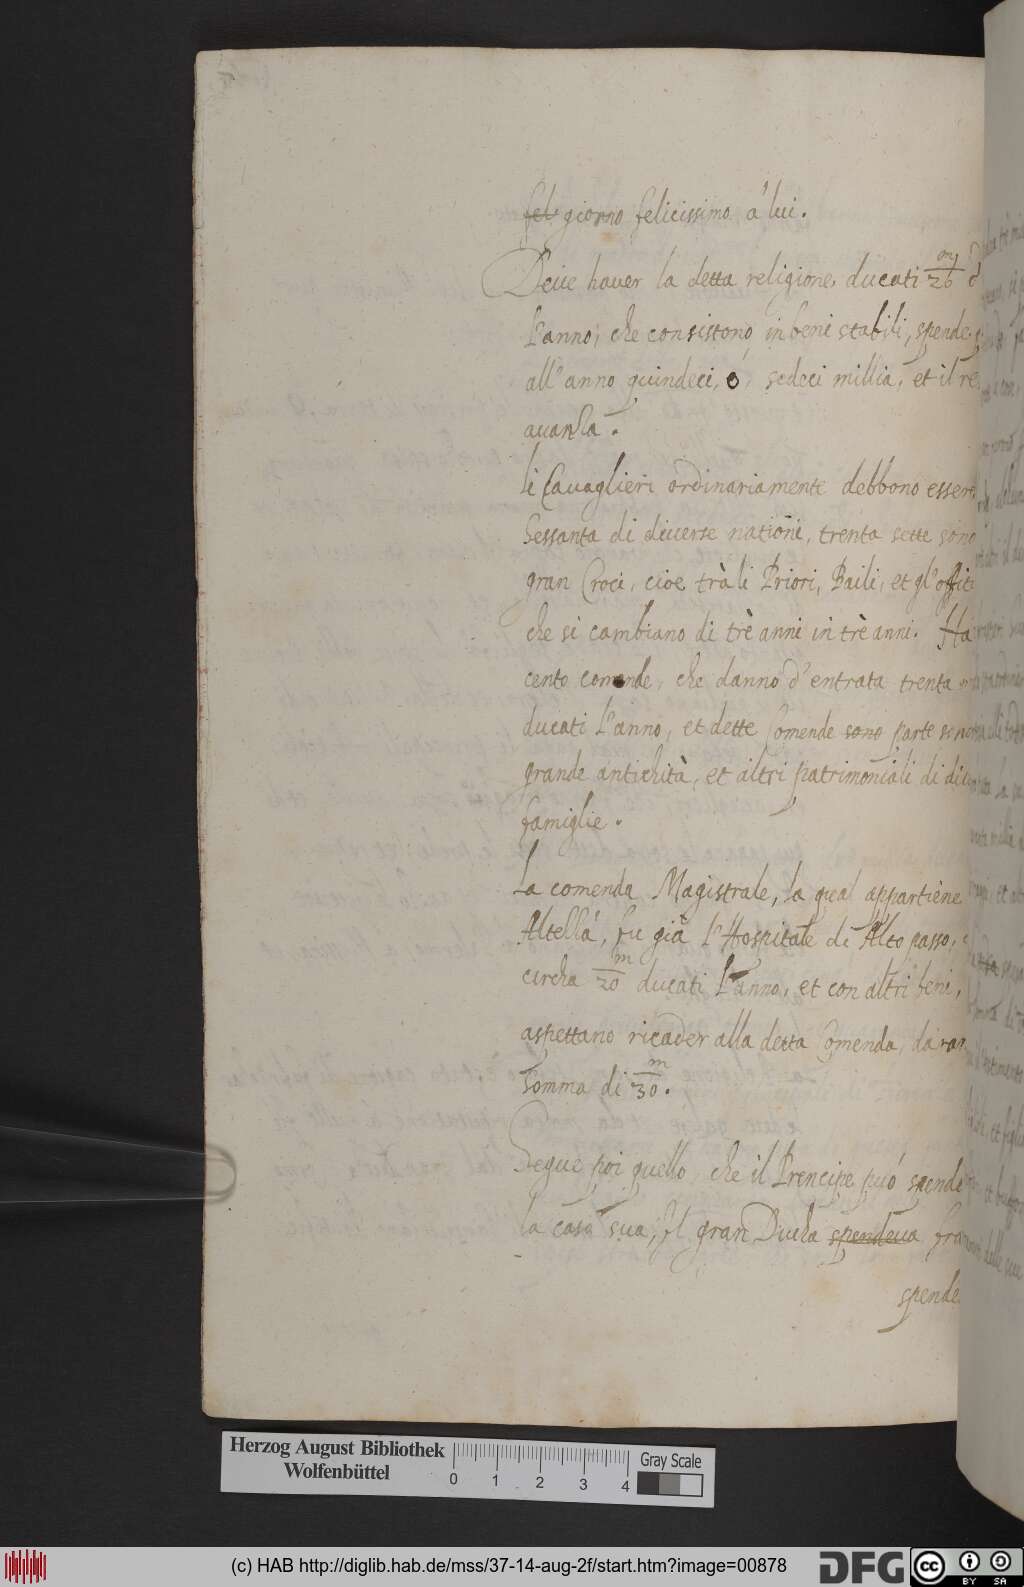 fel giorno felicissimo à lui.
Deue hauer la detta religione, ducati 26 m
l'anno, che consistono in beni stabili, spende
all'anno quindeci, ò, sedeci millia, et il re
auanza.
li Cauaglieri ordinariamente debbono essere
Sessanta di diuerse nationi, trenta sette sono
gran Croci, cioe trà li Priori, Baili, et gl'offiti
che si cambiano di trè anni in trè anni. Ha
cento comende, che danno d'entrata trenta
ducati l'anno, et dette Comende sono parte
grande antichità, et altri patrimoniali di
famiglie.
La comenda Magistrale, la qual appartiene
Altellà, fu già l'Hospitale di Alto passo,
circha 20 m ducati l'anno, et con altri beni,
aspettano ricader alla detta Comenda, da
somma di 30 m.
Segue poi quello, che il Prencipe può spende
la casa sua, Il gran Ducha spendeua fra
spende
Herzog August Bibliothek
Wolfenbüttel
0 1 2 3 4
Gray Scale
(c) HAB http://diglib.hab.de/mss/37-14-aug-2f/start.htm?image=00878
DFG
cc BY SA